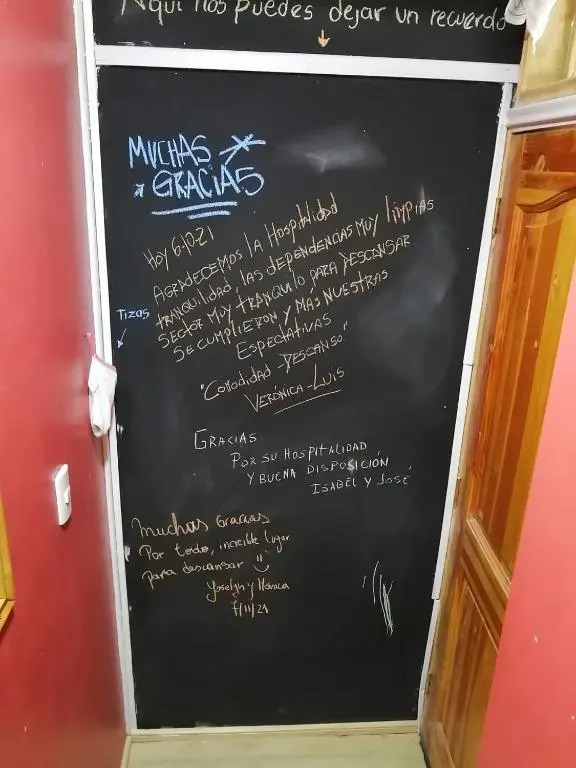 Aquí nos puedes dejar un recuerdo
MUCHAS
GRACIAS
Hoy 6-10-21
AGRADECEMOS LA HOSPITALIDAD
TRANQUILIDAD, LAS DEPENDENCIAS MUY LIMPIAS
SECTOR MUY TRANQUILO PARA DESCANSAR
SE CUMPLIERON Y MÁS NUESTRAS
ESPECTATIVAS
"COMODIDAD - DESCANSO."
VERÓNICA - LUIS
Tizas
GRACIAS
POR SU HOSPITALIDAD
Y BUENA DISPOSICIÓN
ISABEL Y JOSÉ
Muchas Gracias
Por todo, increíble lugar
para descansar
Yoselyn y Mónica
7/11/21